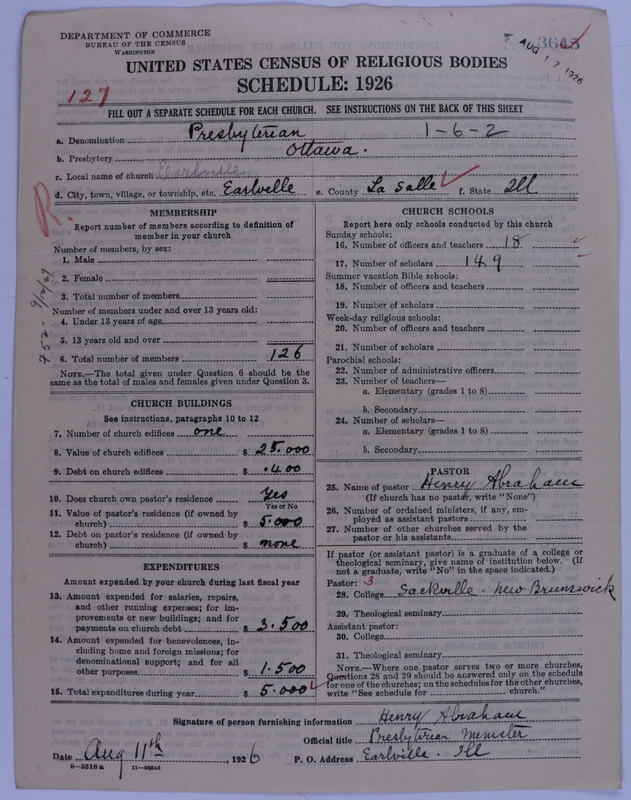 DEPARTMENT OF COMMERCE
BUREAU OF THE CENSUS
WASHINGTON
3645
AUG 17 1926
UNITED STATES CENSUS OF RELIGIOUS BODIES
SCHEDULE: 1926
127
FILL OUT A SEPARATE SCHEDULE FOR EACH CHURCH. SEE INSTRUCTIONS ON THE BACK OF THIS SHEET
a. Denomination Presbyterian 1-6-2
b. Presbytery Ottawa.
c. Local name of church Earlville
d. City, town, village, or township, etc. Earlville e. County La Salle f. State Ill
R.
MEMBERSHIP
Report number of members according to definition of
member in your church
Number of members, by sex:
1. Male
2. Female
3. Total number of members
Number of members under and over 13 years old:
4. Under 13 years of age
5. 13 years old and over
6. Total number of members 126
NOTE.—The total given under Question 6 should be the
same as the total of males and females given under Question 3.
CHURCH BUILDINGS
See instructions, paragraphs 10 to 12
7. Number of church edifices one
8. Value of church edifices $ 25.000
9. Debt on church edifices $ .400
10. Does church own pastor's residence Yes
Yes or No
11. Value of pastor's residence (if owned by
church) $ 5.000
12. Debt on pastor's residence (if owned by
church) $ none
EXPENDITURES
Amount expended by your church during last fiscal year
13. Amount expended for salaries, repairs,
and other running expenses; for im-
provements or new buildings; and for
payments on church debt $ 3.500
14. Amount expended for benevolences, in-
cluding home and foreign missions; for
denominational support; and for all
other purposes $ 1.500
15. Total expenditures during year $ 5.000
CHURCH SCHOOLS
Report here only schools conducted by this church
Sunday schools:
16. Number of officers and teachers 18
17. Number of scholars 149
Summer vacation Bible schools:
18. Number of officers and teachers
19. Number of scholars
Week-day religious schools:
20. Number of officers and teachers
21. Number of scholars
Parochial schools:
22. Number of administrative officers
23. Number of teachers—
a. Elementary (grades 1 to 8)
b. Secondary
24. Number of scholars—
a. Elementary (grades 1 to 8)
b. Secondary
PASTOR
25. Name of pastor Henry Abraham
(If church has no pastor, write "None")
26. Number of ordained ministers, if any, em-
ployed as assistant pastors
27. Number of other churches served by the
pastor or his assistants
If pastor (or assistant pastor) is a graduate of a college or
theological seminary, give name of institution below. (If
not a graduate, write "No" in the space indicated.)
Pastor: 3
28. College Sackville. New Brunswick
29. Theological seminary
Assistant pastor:
30. College
31. Theological seminary
NOTE.—Where one pastor serves two or more churches,
Questions 28 and 29 should be answered only on the schedule
for one of the churches; on the schedules for the other churches,
write "See schedule for church."
Signature of person furnishing information Henry Abraham
Official title Presbyterian Minister
Date Aug 11th, 1926 P. O. Address Earlville. Ill
8-5518a